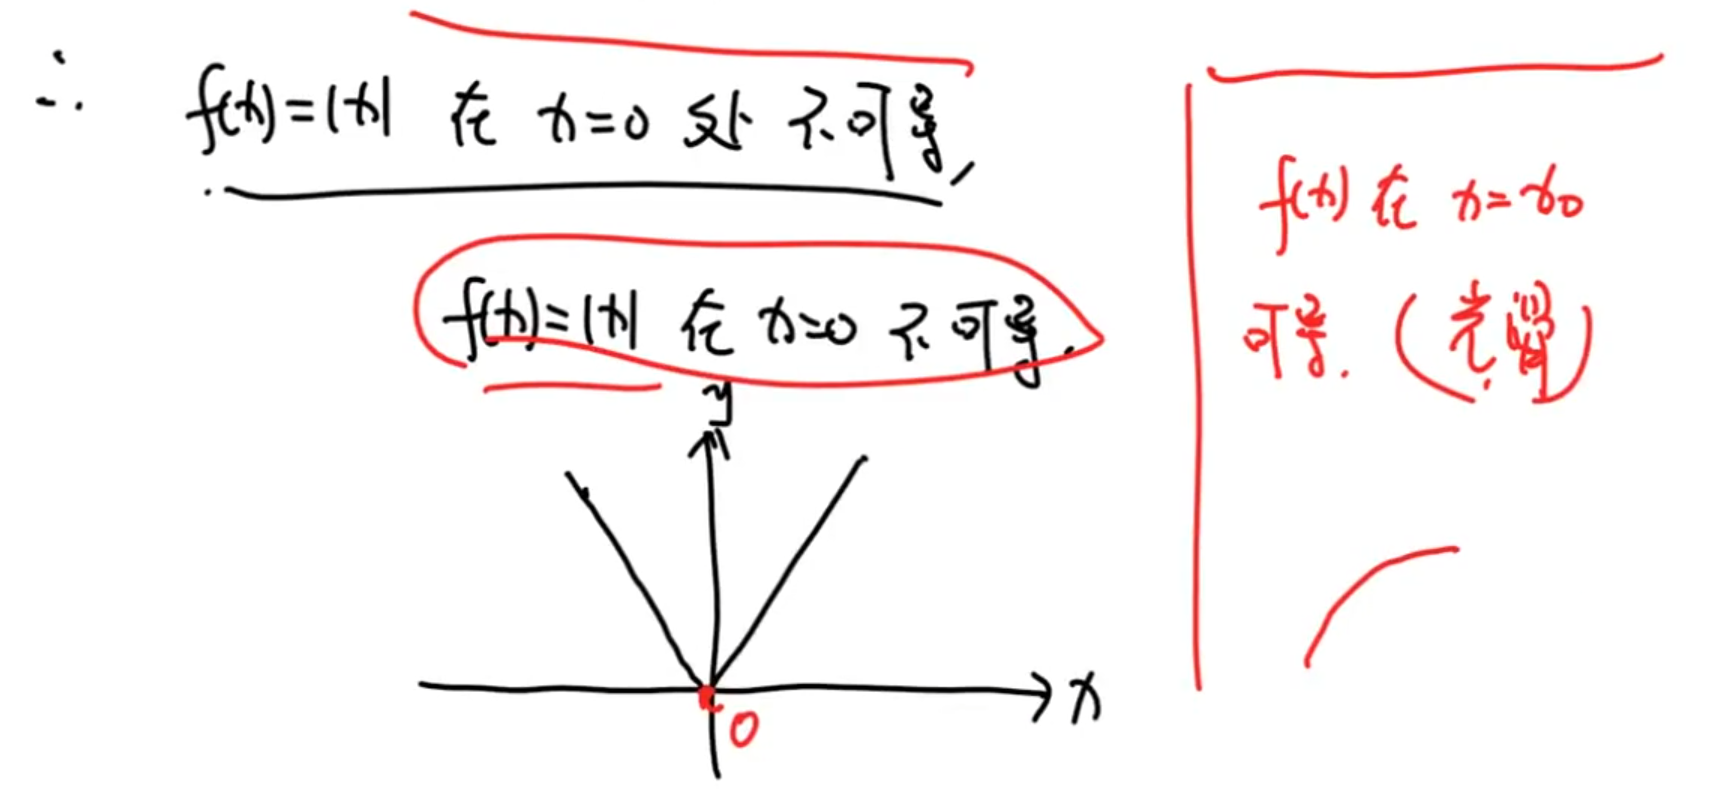 ∴ f(x)=|x| 在 x=0 处不可导,
f(x)=|x| 在 x=0 不可导.
y
x
0
f(x) 在 x=x₀
可导. (光滑)